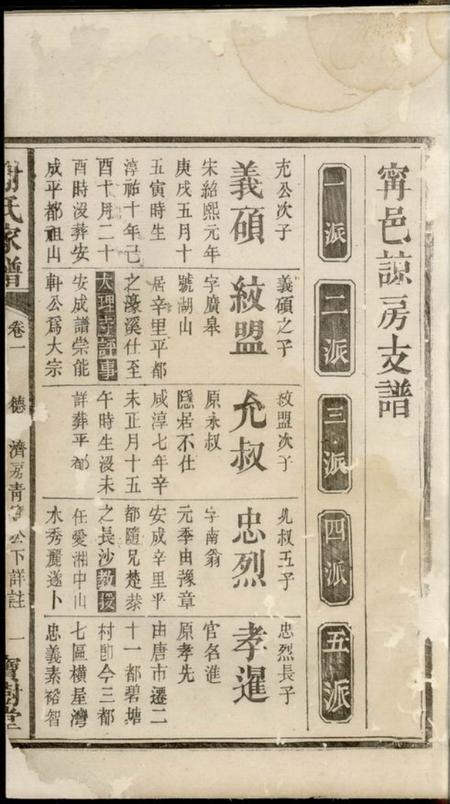 甯邑諒房支譜
一派
二派
三派
四派
五派
充公次子
義碩
宋紹熙元年
庚戌五月十
五寅時生
淳祐十年己
酉十月二十
酉時沒葬安
成平都祖山
義碩之子
紋盟
字廣皋
號湖山
居辛里平都
之濠溪仕至
大理寺評事
安成譜崇能
軒公爲大宗
紋盟次子
允叔
原永叔
隱居不仕
咸淳七年辛
未正月十五
午時生沒未
詳葬平都
允叔五子
忠烈
字南翁
元季由豫章
安成辛里平
都隨兄楚恭
之長沙教授
任愛湘中山
水秀麗遂卜
忠烈長子
孝暹
官名進
原孝先
由唐市遷二
十一都碧塘
村即今三都
七區橫屋灣
忠義素裕智
謝氏家譜
卷一
德
濟房青
公下詳註
一
寶樹堂